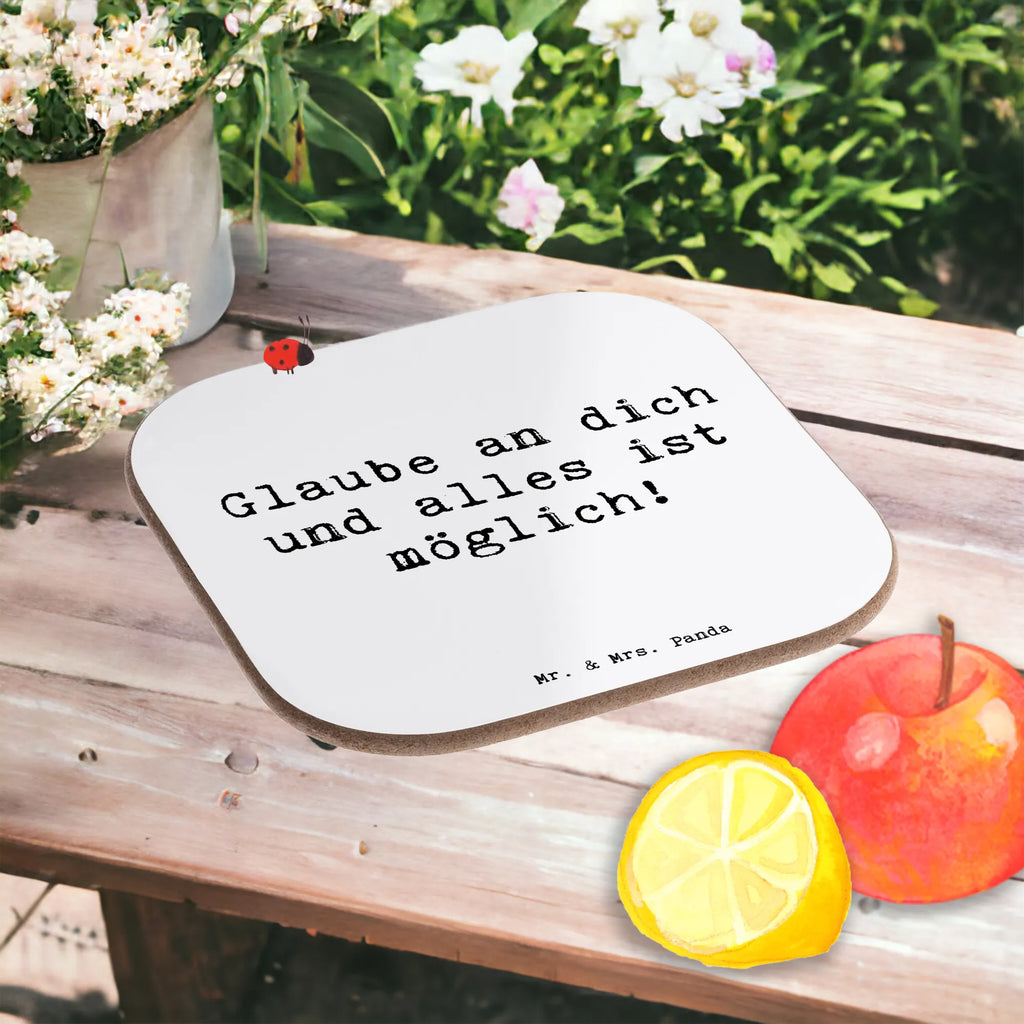 Glaube an dich
und alles ist
möglich!
Mr. & Mrs. Panda